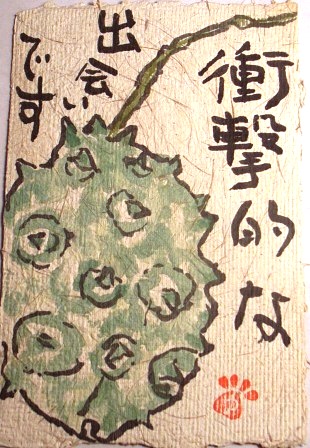 衝撃的な
出会い
です